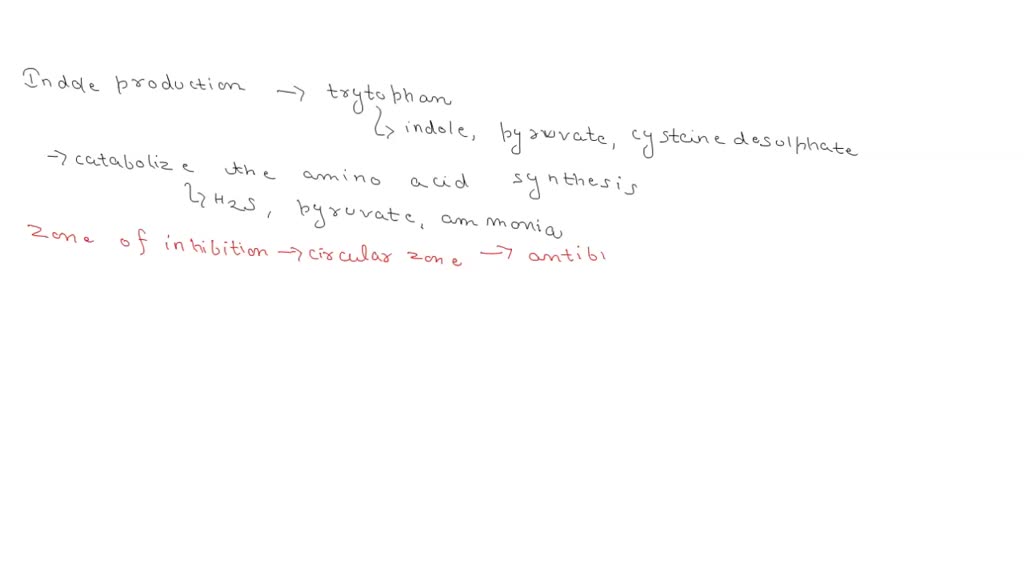 Indole production → trytophan
↳ indole, pyruvate, cysteine desulphate
→ catabolize the amino acid synthesis
↳ H2S, pyruvate, ammonia
Zone of inhibition → circular zone → antibi